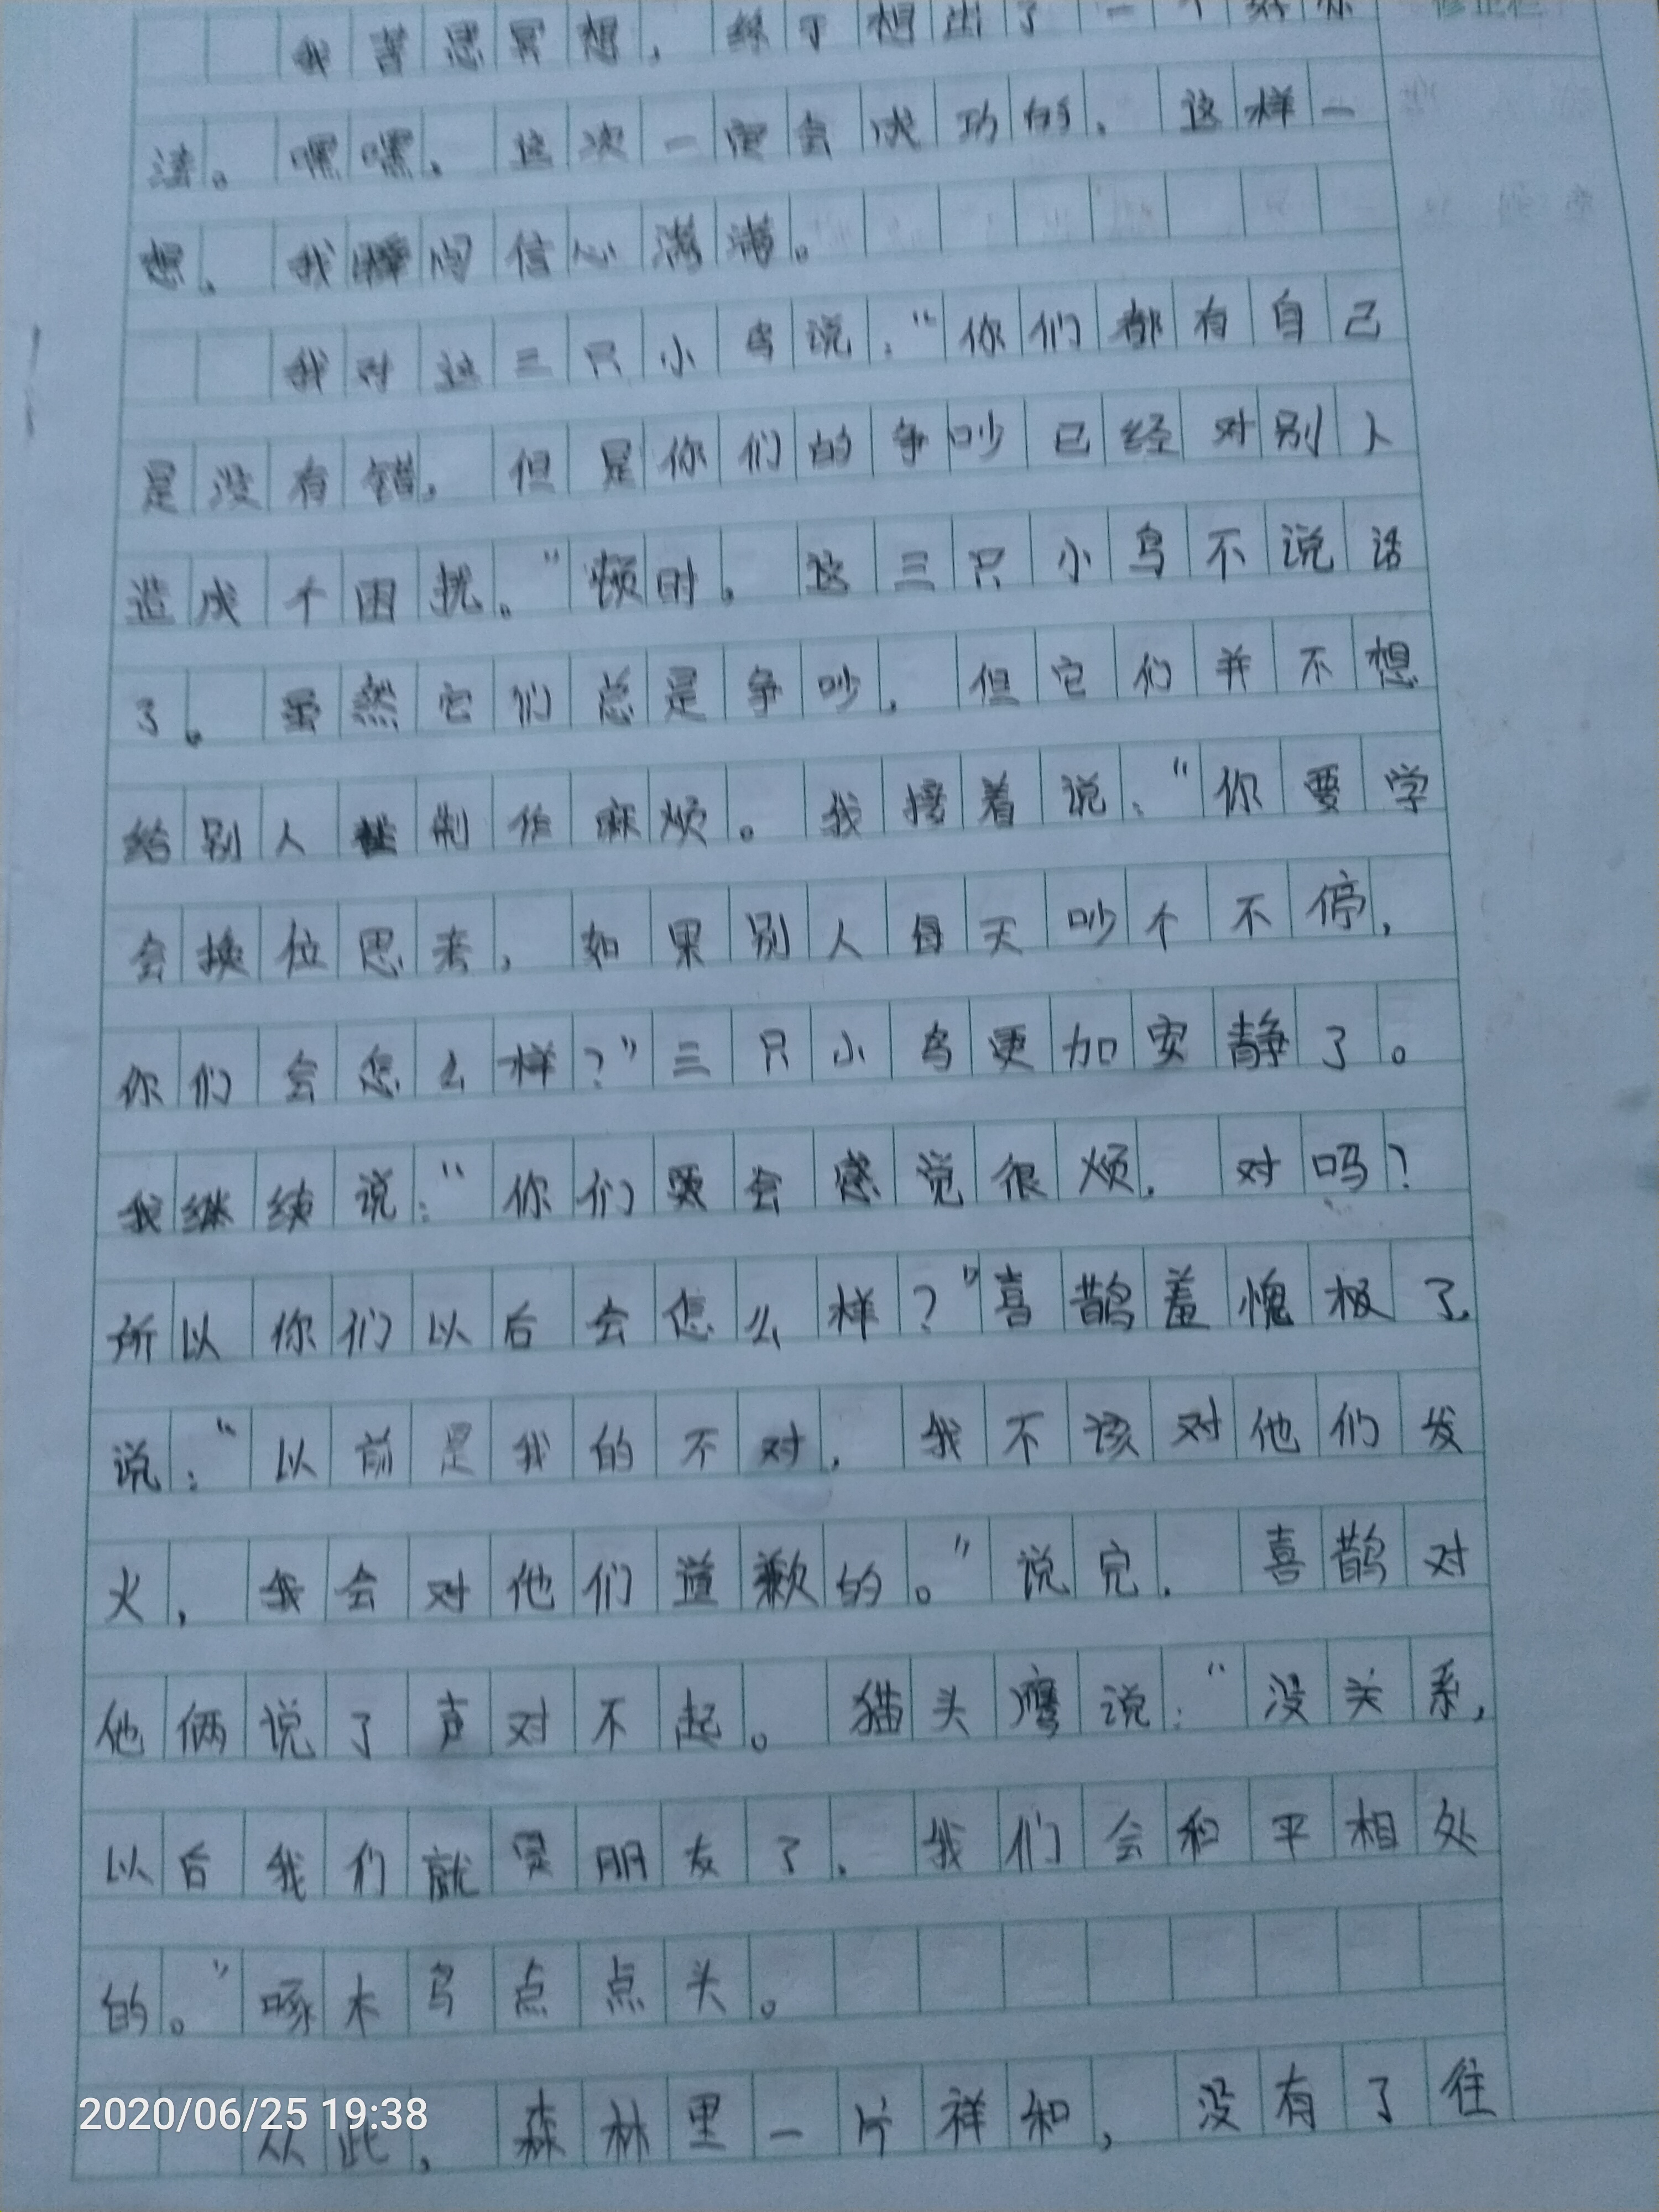 我苦思冥想，终于想出了一个好办
法。嘿嘿，这次一定会成功的，这样一
想，我瞬间信心满满。
我对这三只小鸟说：“你们都有自己
是没有错，但是你们的争吵已经对别人
造成个困扰。”顿时，这三只小鸟不说话
了。虽然它们总是争吵，但它们并不想
给别人制作麻烦。我接着说：“你要学
会换位思考，如果别人每天吵个不停，
你们会怎么样？”三只小鸟更加安静了。
我继续说：“你们会感觉很烦，对吗？
所以你们以后会怎么样？”喜鹊羞愧极了，
说：“以前是我的不对，我不该对他们发
火，我会对他们道歉的。”说完，喜鹊对
他俩说了声对不起。猫头鹰说：“没关系，
以后我们就是朋友了，我们会和平相处
的。”啄木鸟点点头。
从此，森林里一片祥和，没有了往
2020/06/25 19:38